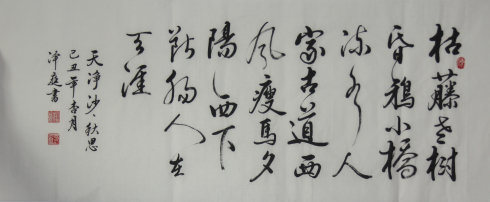 枯藤老樹
昏鴉小橋
流水人
家古道西
風瘦馬夕
陽西下
斷腸人在
天涯
天淨沙、秋思
己丑年杏月
庭書